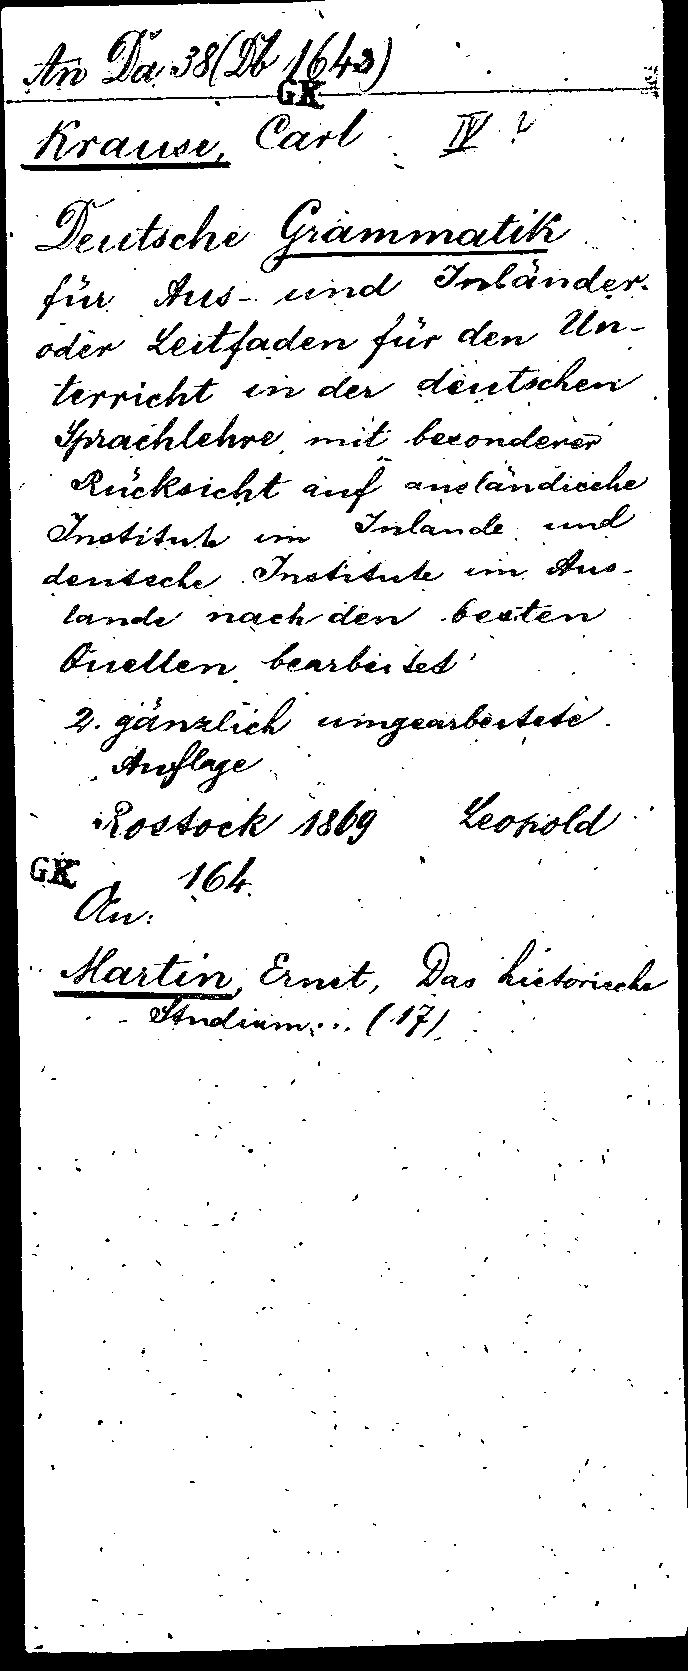 An Da 38 (Db 1643)
GK
Krause, Carl IV ?
Deutsche Grammatik
für Aus- und Inländer
oder Leitfaden für den Un-
terricht in der deutschen
Sprachlehre mit besonderer
Rücksicht auf ausländische
Institute im Inlande und
deutsche Institute im Aus-
lande nach den besten
Quellen bearbeitet
2. gänzlich umgearbeitete
Auflage
Rostock 1869 Leopold
GK 164
An:
Martin, Ernst, Das historische
Studium... (17)